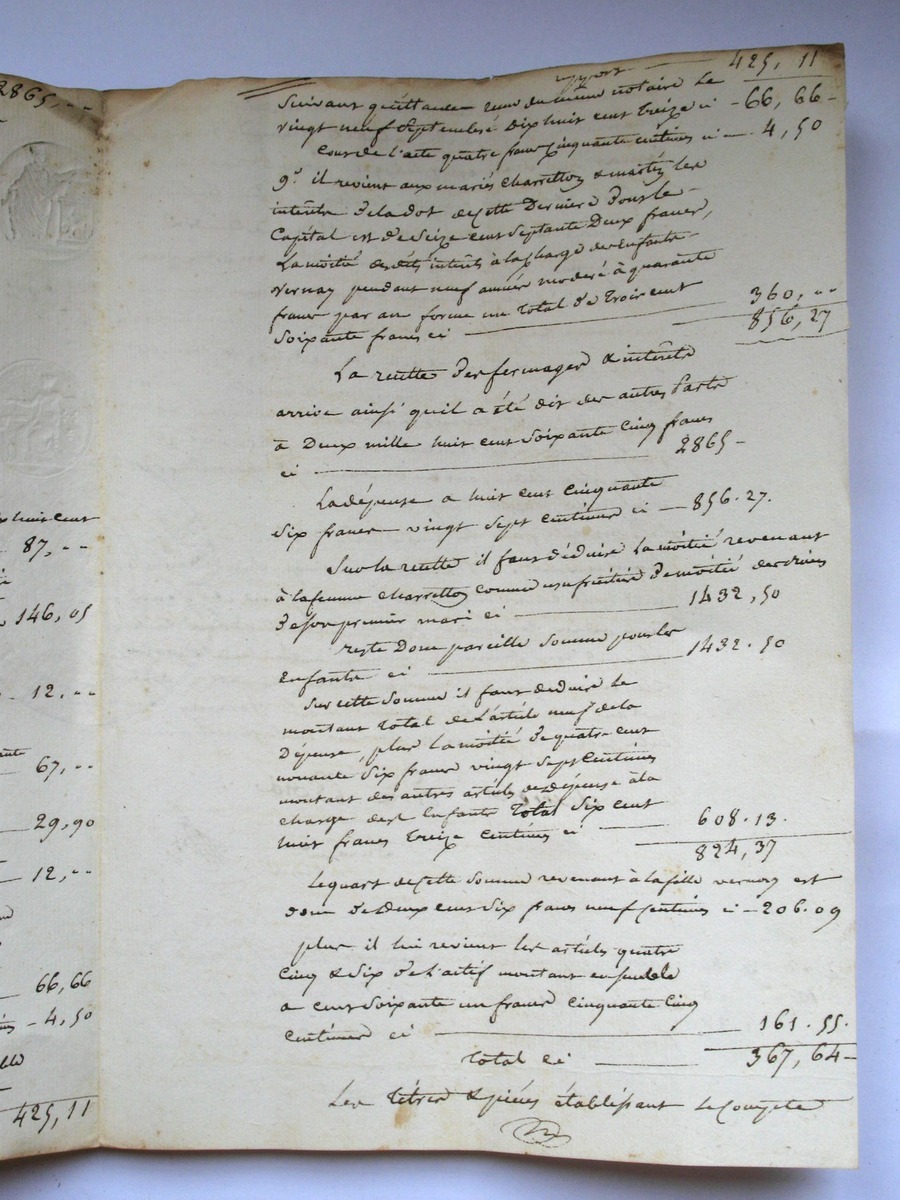 2865, ..
p huit cent
87, ..
146, 05
12, ..
67, ..
29,90
12, ..
66,66
4,50
425,11
report — 425, 11
Suivant quittance du même notaire le
vingt neuf septembre dix huit cent treize ci — 66, 66 —
Cout de l'acte quatre francs cinquante centimes ci — 4, 50
9° il revient aux mariés Charretton & les
interêts de la dot de cette derniere dont le
Capital est de Seize cent Septante Deux francs,
La moitié desdits interêts à la charge des Enfants
Vernay pendant neuf années moderé à quarante
francs par an forme un total de trois cent
Soixante francs ci — 360, ..
856, 27
La recette des fermages & interêts
arrive ainsi qu'il a été dit des autres parts
à Deux mille huit cent Soixante Cinq francs
ci — 2865 —
La dépense a huit cent cinquante
Six francs vingt sept centimes ci — 856.27.
Sur la recette il faut déduire la moitié revenant
à la femme Charretton comme usufruitiere de moitié des
de son premier mari ci — 1432, 50
reste Donc pareille Somme pour les
Enfants ci — 1432.50
Sur cette Somme il faut déduire le
montant total de l'article neuf de la
Dépense, plus la moitié de quatre cent
nonante Six francs vingt Sept Centimes
montant des autres articles de dépense à la
charge des Enfants total Six cent
huit francs treize centimes ci — 608.13.
824, 37
Le quart de cette Somme revenant à la fille vernay est
donc de Deux cent Six francs neuf Centimes ci — 206.09
plus il lui revient les articles quatre
Cinq & Six de l'actif montant ensemble
a cent Soixante un francs cinquante Cinq
centimes ci — 161.55.
total ci — 367, 64 —
Les titres & pièces établissant le Compte